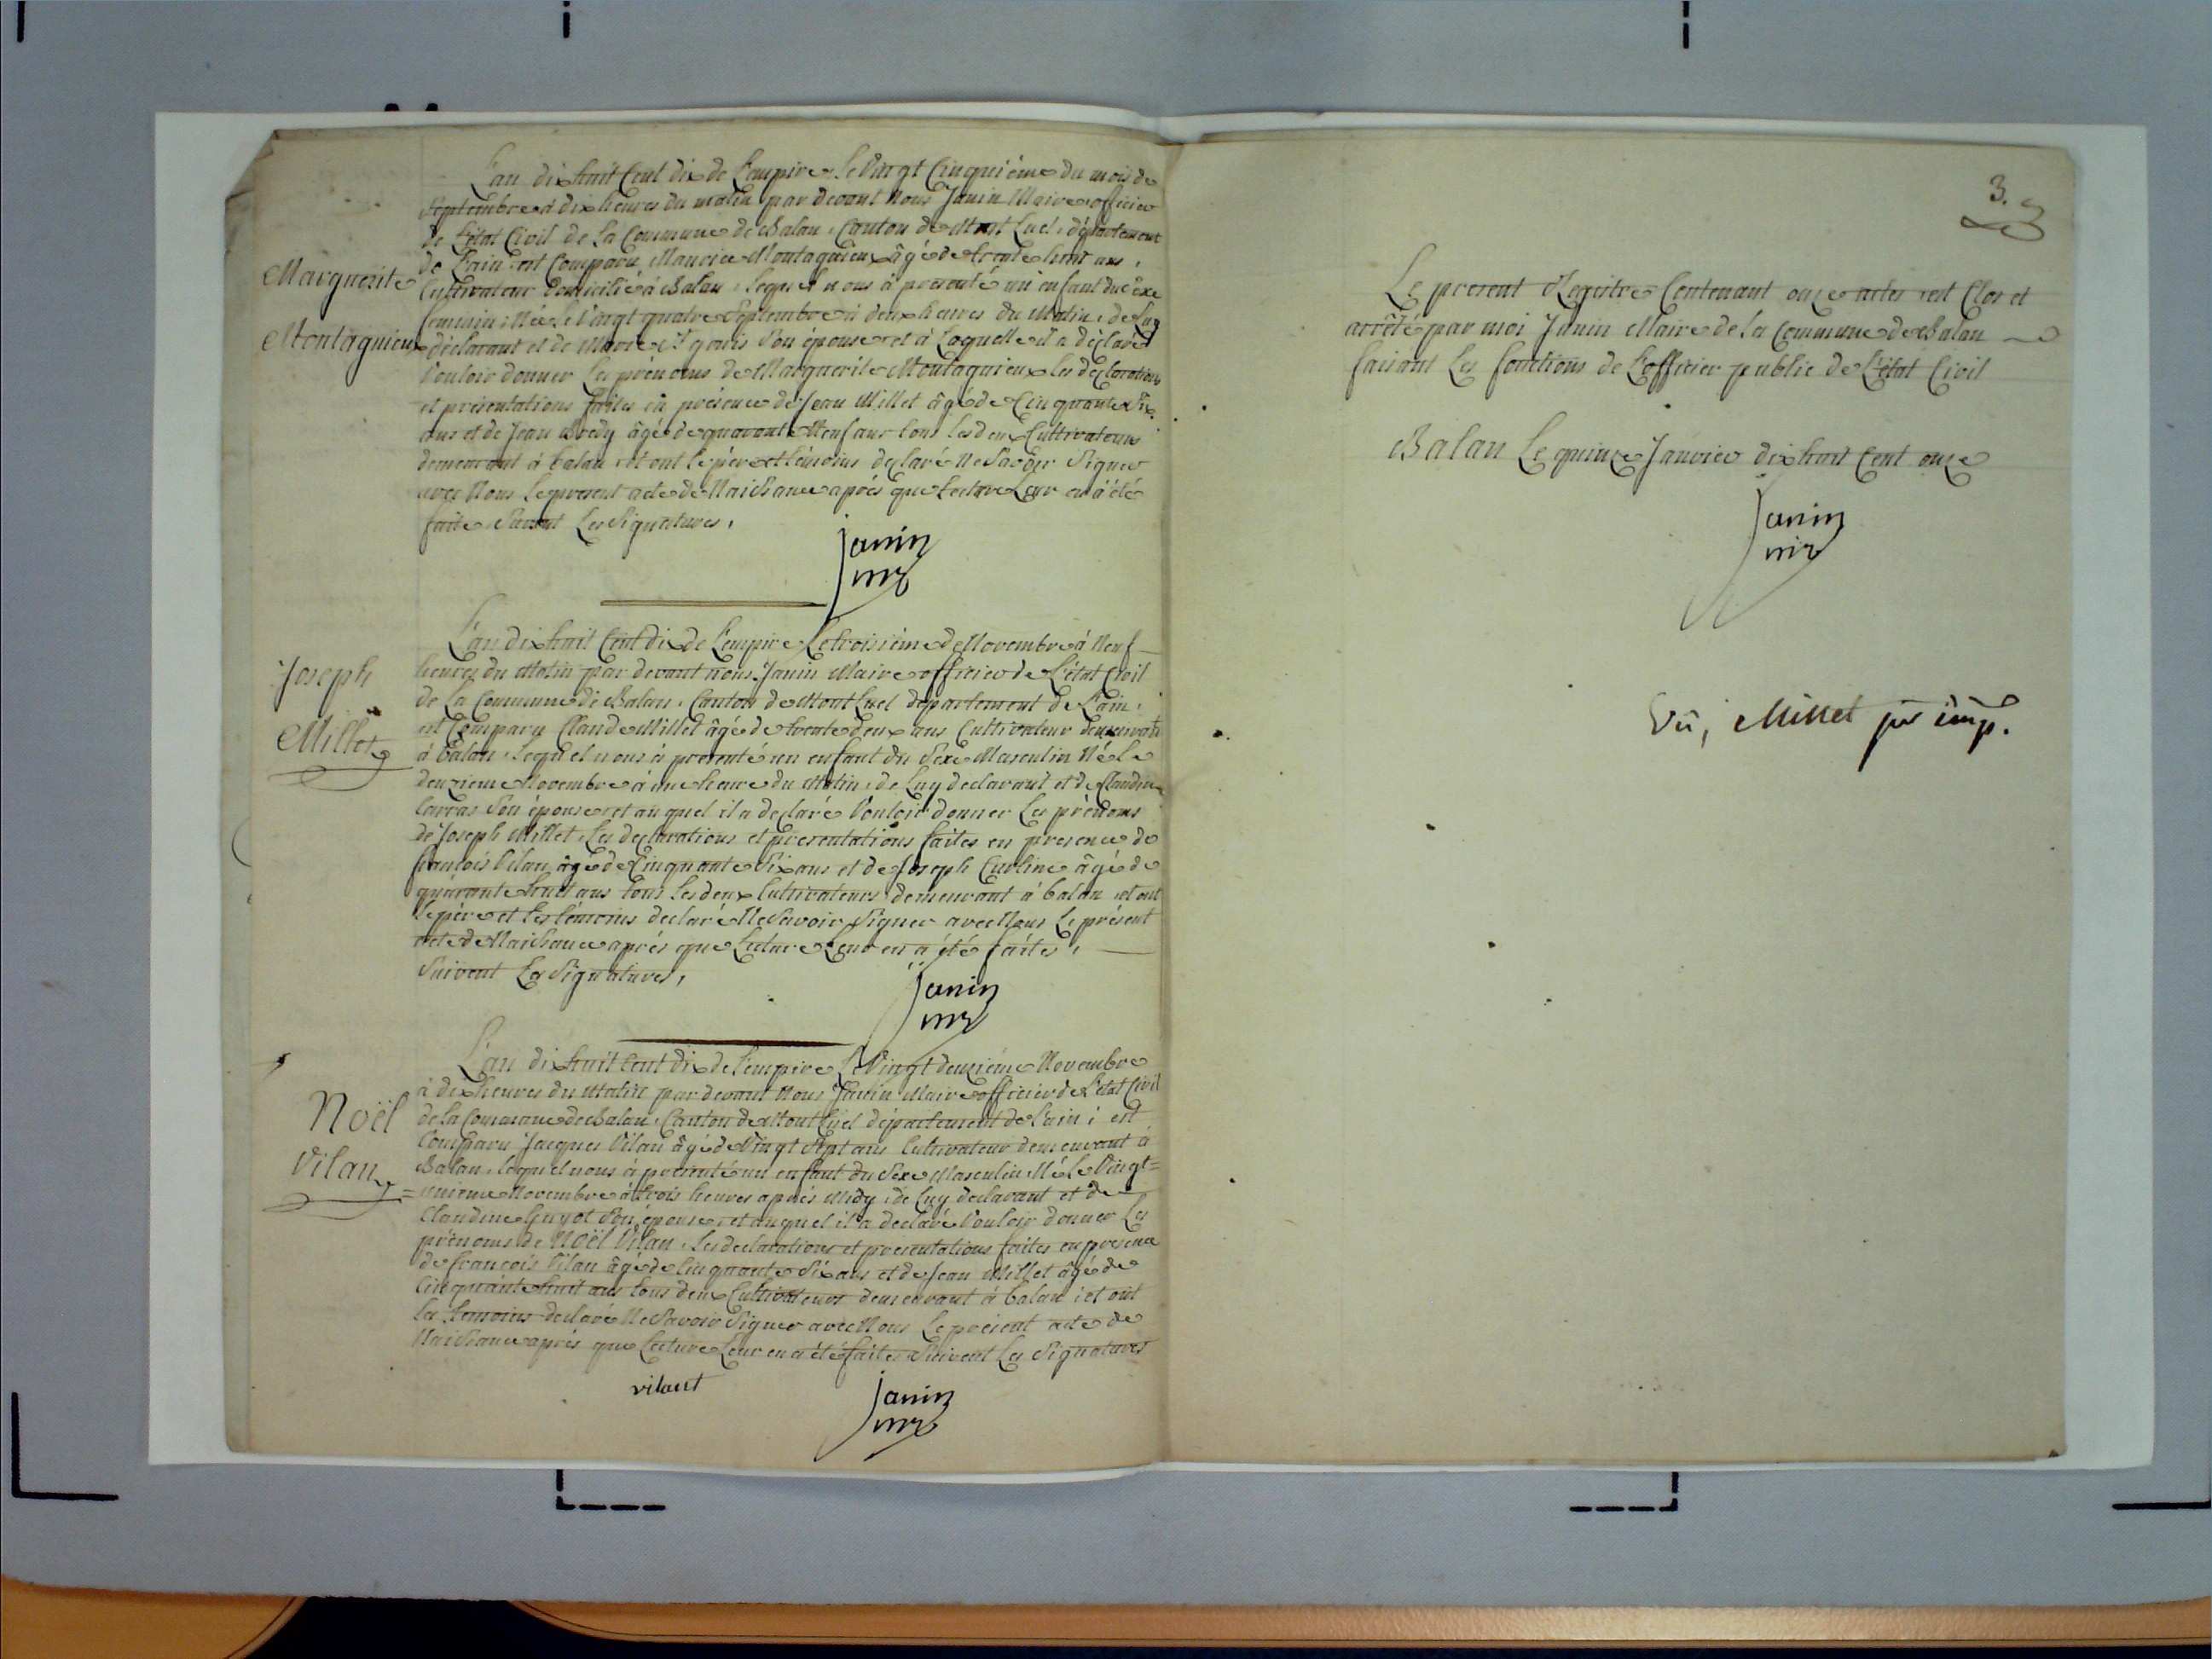 L'an dix huit Cent dix de L'empire, Le Vingt Cinquième du mois de
Septembre à dix heures du matin par devant Nous Janin Maire officier
de L'état Civil de La Commune de Balan, Canton de Montluel, département
de L'ain, est Comparu Maurice Montagnieux âgé de trente huit ans,
Cultivateur Domicilié à Balan, lequel nous à présenté un enfant du Sexe
feminin, Née Le Vingt quatre Septembre à deux heures du Matin, de Luy
déclarant et de Marie Son épouse, et à Laquelle il a déclaré
Vouloir donner Les prénoms de Marguerite Montagnieux les déclarations
et présentations faites en présence de Jean Millet âgé de Cinquante Six
ans et de Jean âgé de quarante Neuf ans tous les deux Cultivateurs
demeurant à balan, et ont le père et témoins declaré Ne Savoir Signer
avec Nous Le present acte de Naissance après que Lecture Leur en a été
faite, Suivent Les Signatures,
Marguerite
Montagnieux
Janin
mre
L'an dix huit Cent dix de L'empire, Le troisième de Novembre à Neuf
heures du Matin par devant nous Janin Maire officier de L'état Civil
de La Commune de Balan, Canton de Montluel département de L'ain,
est Comparu Claude Millet âgé de trente deux ans Cultivateur demeurant
à Balan, Lequel nous à presenté un enfant du Sexe Masculin Né Le
deuxieme Novembre à une heure du Matin, de Luy declarant et de Claudine
Carras Son épouse, et auquel il a declaré Vouloir donner Les prénoms
de Joseph Millet, Les declarations et presentations faites en presence de
françois Vilan âgé de Cinquante Six ans et de Joseph âgé de
quarante huit ans tous les deux Cultivateurs demeurant à balan et ont
le père et les témoins declaré Ne Savoir Signer avec Nous Le présent
acte de Naissance après que Lecture Leur en a été faites,
Suivent Les Signatures,
Joseph
Millet
Janin
mre
L'an dix huit Cent dix de L'empire, Le Vingt deuxième Novembre
à dix heures du Matin par devant Nous Janin Maire officier de L'état Civil
de la Commune de Balan, Canton de Montluel département de L'ain, est
Comparu Jacques Vilan âgé de Vingt Sept ans Cultivateur demeurant à
Balan, lequel nous à presenté un enfant du Sexe Masculin Né le Vingt=
=unieme Novembre à trois heures après Midy, de Luy declarant et de
Claudine Guyot Son épouse, et auquel il a declaré Vouloir donner Les
prénoms de Noël Vilan, Les declarations et presentations faites en presence
de françois Vilan âgé de Cinquante Six ans et de Jean Millet âgé de
Cinquante huit ans tous deux Cultivateurs demeurant à balan, et ont
les temoins declaré Ne Savoir Signer avec Nous Le présent acte de
Naissance après que Lecture Leur en a été faites Suivent Les Signatures
Noël
Vilan
vilant
Janin
mre
3.
Le present Registre Contenant onze actes est Clos et
arrêté par moi Janin Maire de La Commune de Balan
faisant Les fonctions de L'officier public de L'état Civil
Balan Le quinze Janvier dix huit Cent onze
Janin
mre
Vû, Millet pr imp.